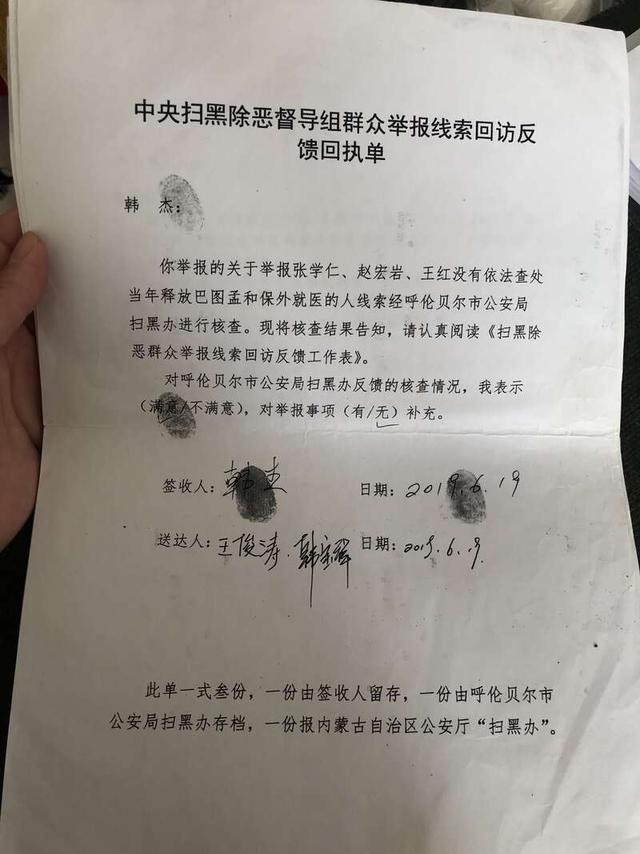 中央扫黑除恶督导组群众举报线索回访反
馈回执单
韩 杰：
你举报的关于举报张学仁、赵宏岩、王红没有依法查处
当年释放巴图孟和保外就医的人线索经呼伦贝尔市公安局
扫黑办进行核查。现将核查结果告知，请认真阅读《扫黑除
恶群众举报线索回访反馈工作表》。
对呼伦贝尔市公安局扫黑办反馈的核查情况，我表示
（满意/不满意），对举报事项（有/无）补充。
签收人：韩杰 日期：2019.6.19
送达人：王俊涛.韩宝辉 日期：2019.6.19.
此单一式叁份，一份由签收人留存，一份由呼伦贝尔市
公安局扫黑办存档，一份报内蒙古自治区公安厅“扫黑办”。